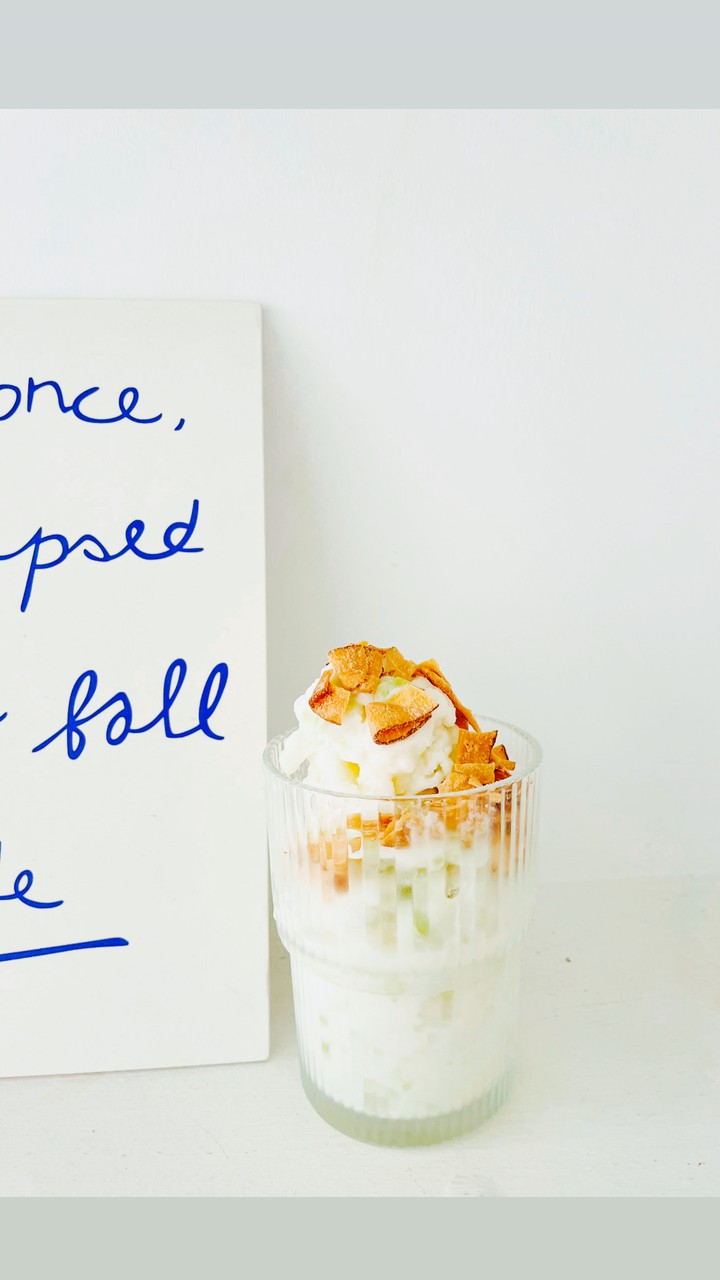 once,
psed
fall